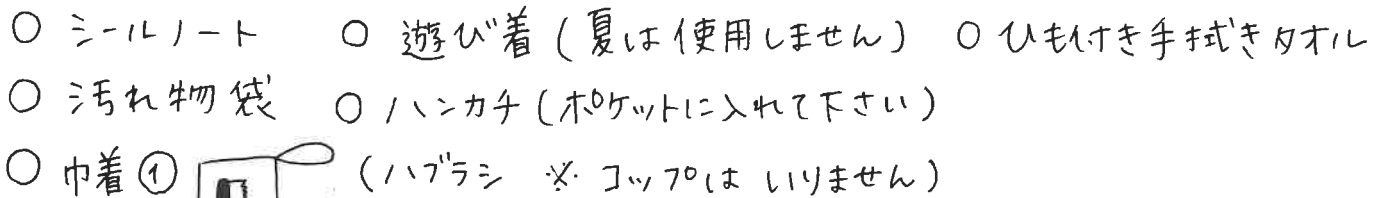 ○ シールノート ○ 遊び着（夏は使用しません） ○ ひも付き手拭きタオル
○ 汚れ物袋 ○ ハンカチ（ポケットに入れて下さい）
○ 巾着① （ハブラシ ※コップは いりません）